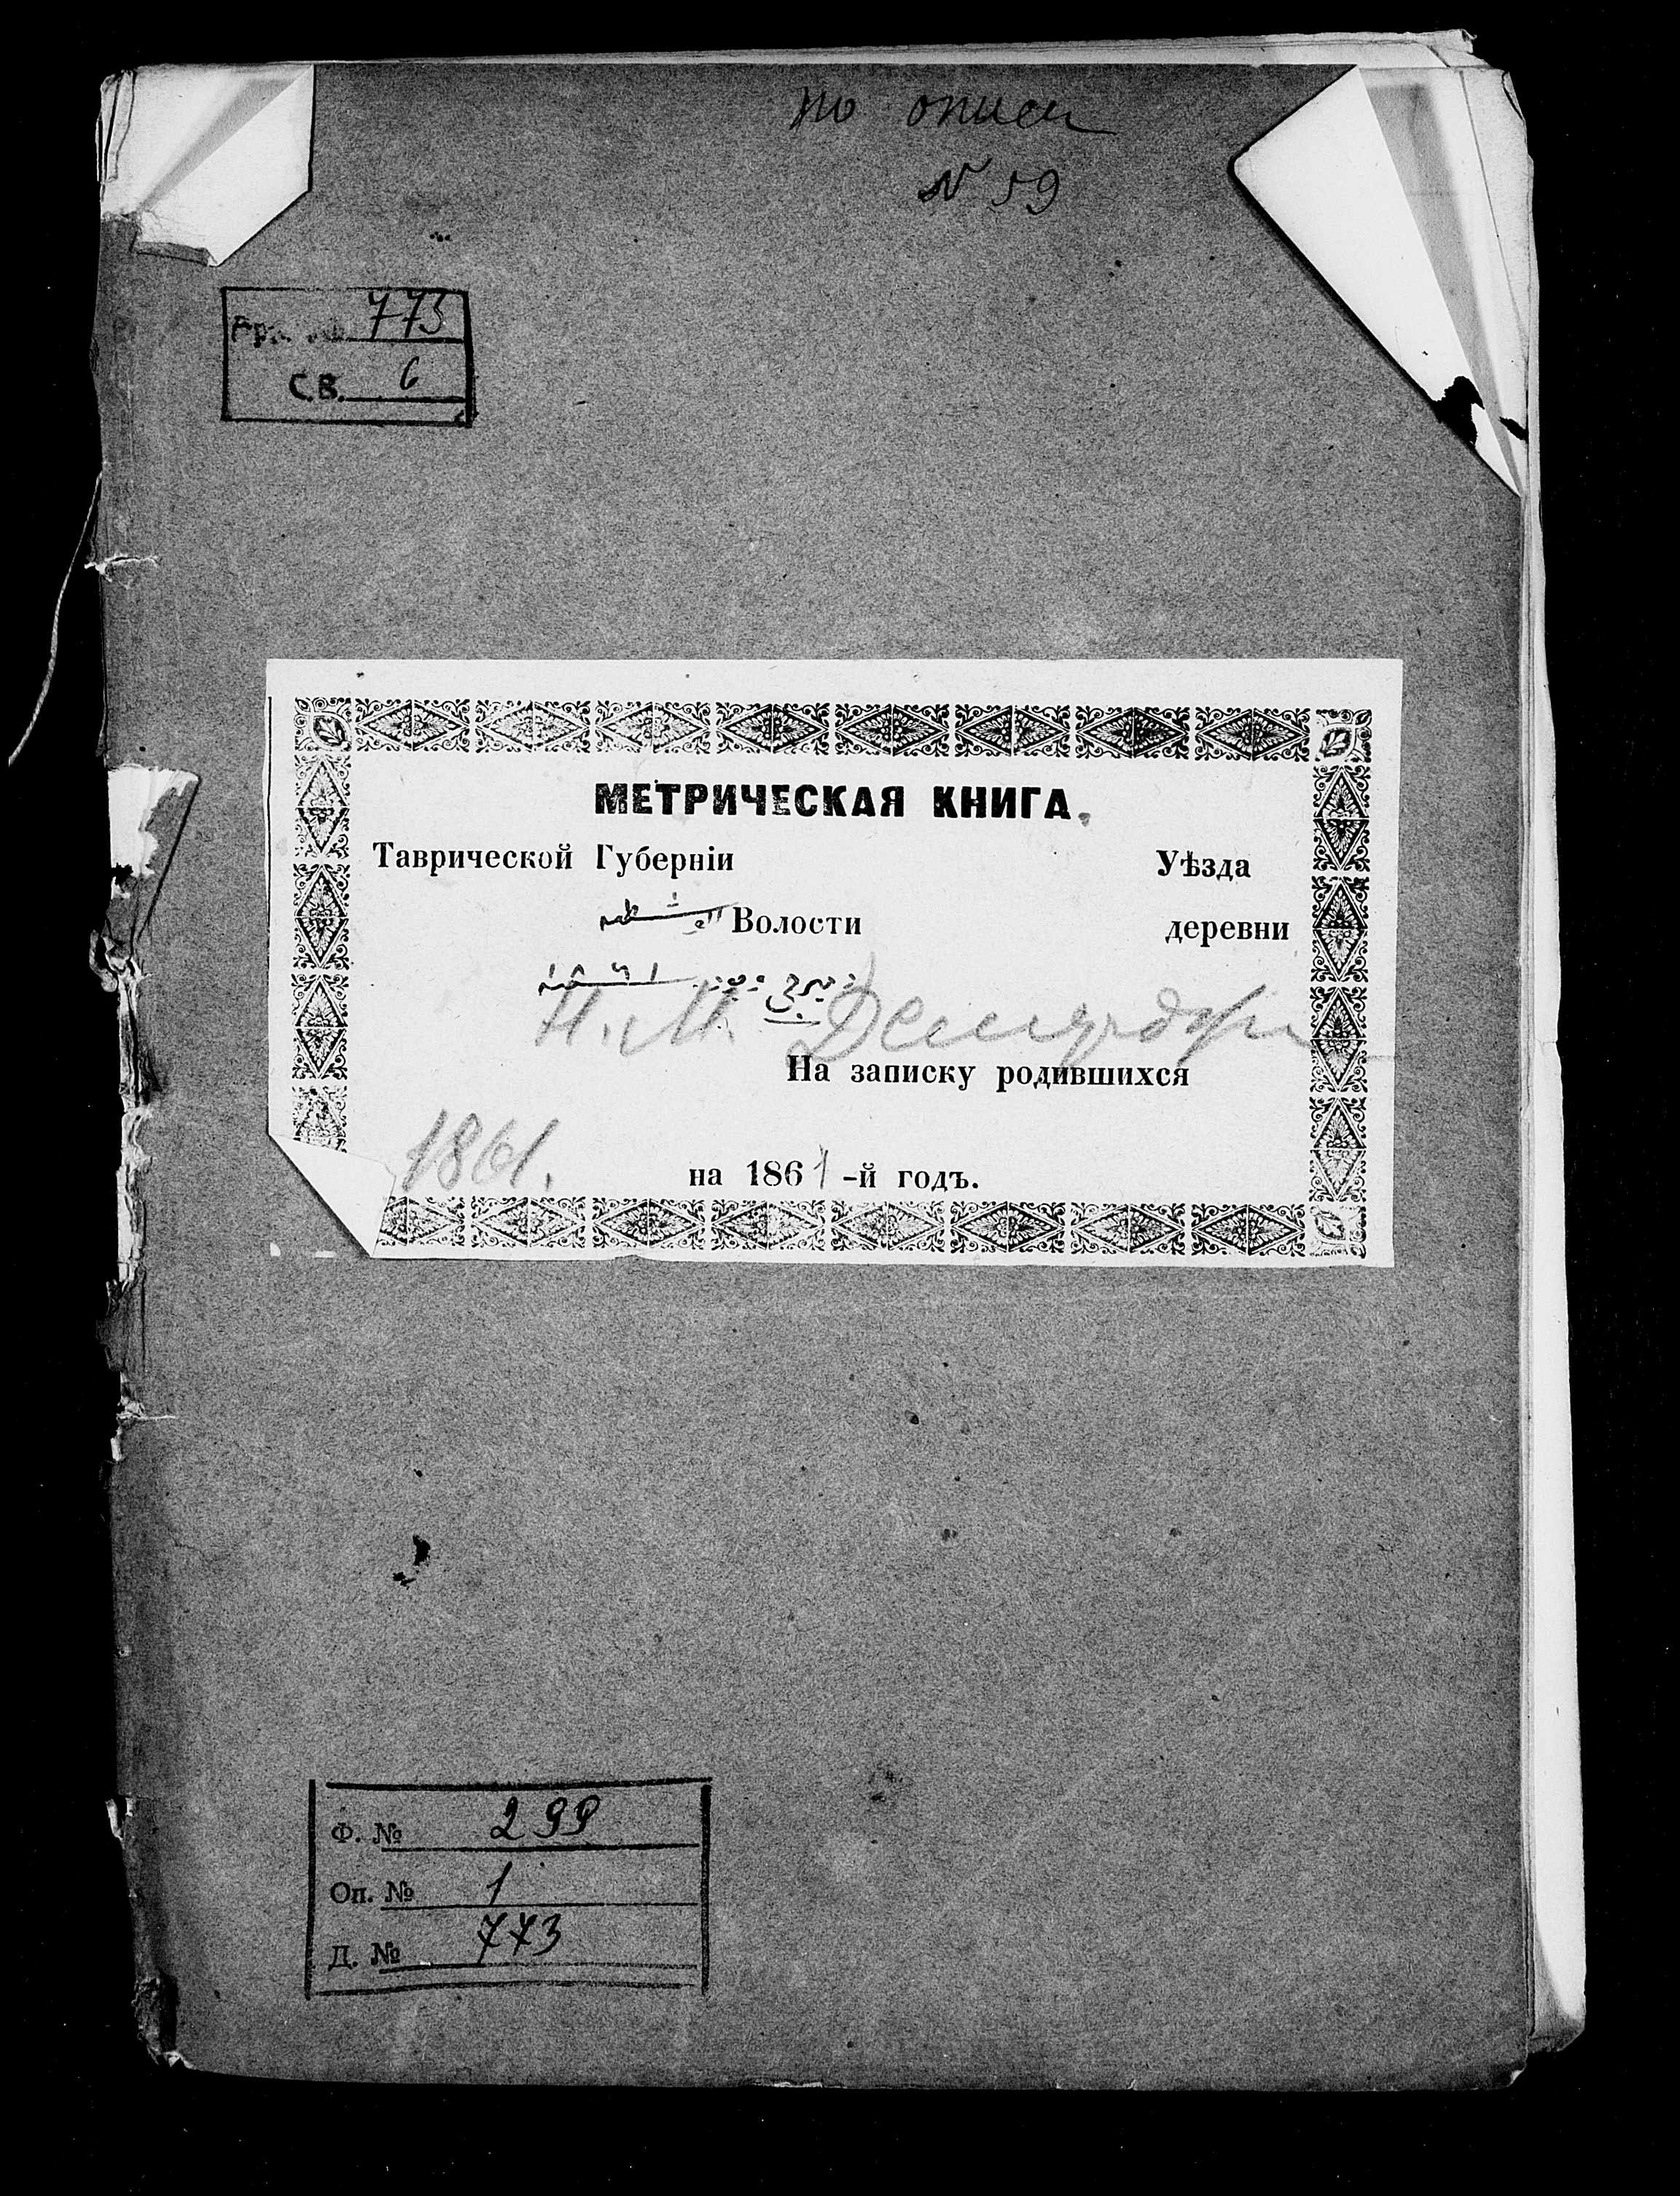 по описи
№ 59
773
С.В. 6
МЕТРИЧЕСКАЯ КНИГА.
Таврической Губерніи Уѣзда
Волости деревни
На записку родившихся
1861.
на 1861-й годъ.
Ф. № 299
Оп. № 1
Д. № 773